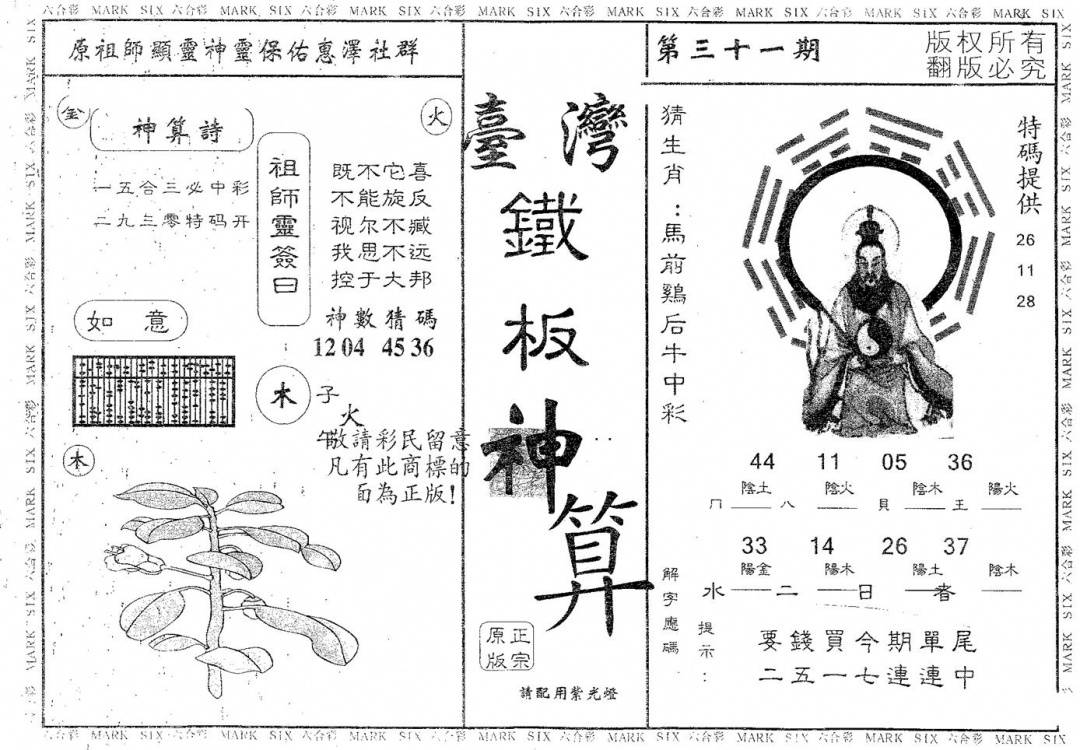 六合彩 MARK SIX 六合彩 MARK SIX 六合彩 MARK SIX 六合彩 MARK SIX 六合彩 MARK SIX 六合彩 MARK SIX 六合彩 MARK SIX 六合彩 MARK SIX
原祖師顯靈神靈保佑惠澤社群
金
神算詩
火
一五合三必中彩
二九三零特码开
祖師靈簽曰
既不它喜
不能旋反
视尔不臧
我思不远
控于大邦
神數猜碼
12 04 45 36
如意
木
子
火
午敬請彩民留意
凡有此商標的
面為正版!
木
臺灣
鐵
板
神
算
正宗
原版
請配用紫光燈
第三十一期
版权所有
翻版必究
猜生肖:馬前鷄后牛中彩
特碼提供
26
11
28
44 11 05 36
陰土 陰火 陰木 陽火
八 貝 王
33 14 26 37
陽金 陽木 陽土 陰木
水 二 日
解字應碼
提示:
要錢買今期單尾
二五一七連連中
六合彩 MARK SIX 六合彩 MARK SIX 六合彩 MARK SIX 六合彩 MARK SIX 六合彩 MARK SIX 六合彩 MARK SIX 六合彩 MARK SIX 六合彩 MARK SIX